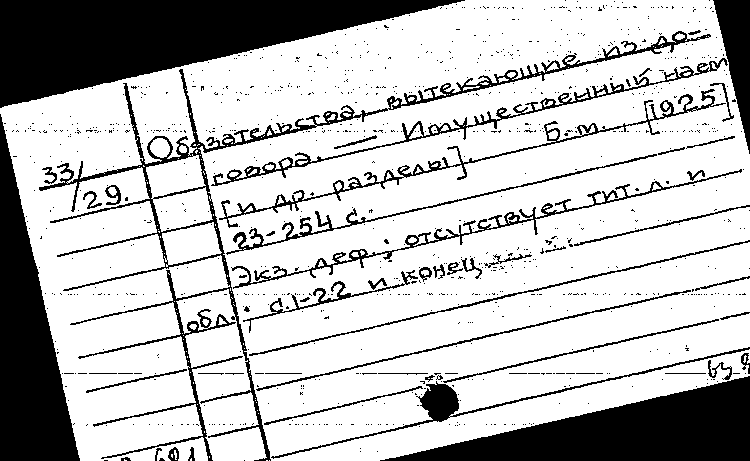 33/29.
Обязательства, вытекающие из до-
говора. — Имущественный наем
[и др. разделы]. Б.м., [1925].
23-254 с.
Экз. деф.; отсутствует тит. л. и
обл.; с.1-22 и конец